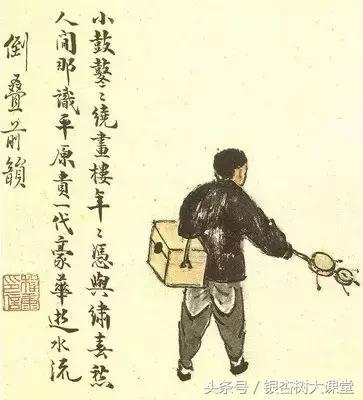 小鼓鼕〻繞畫樓年〻憑與繡春愁
人間那識平原貴一代豪華逝水流
倒疊前韻
头条号 / 银杏树大课堂